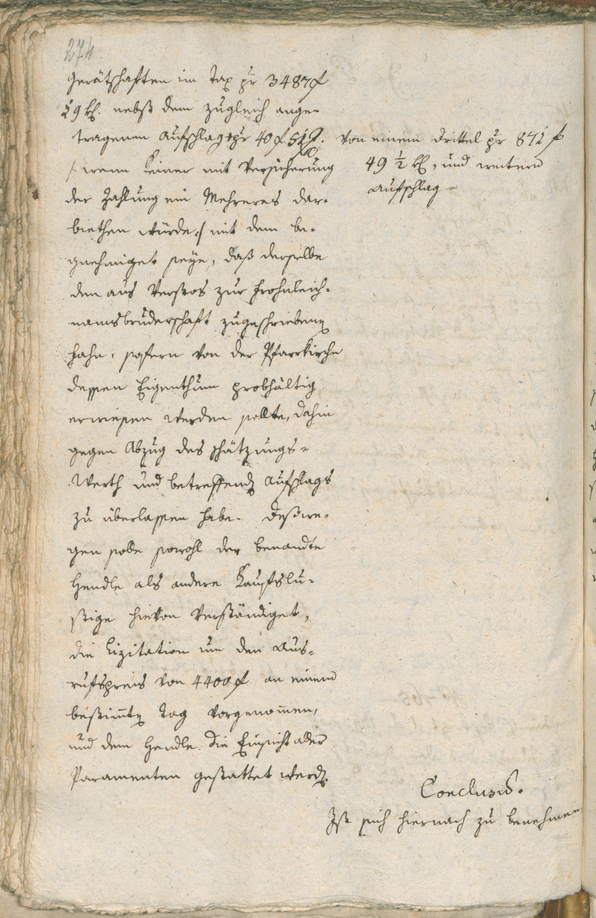 274
Geräthschaften im Tax pr 3487 f
29 kr. nebst dem zugleich ange-
tragenen Aufschlag pr 40 f 51
/: wenn keiner mit Versicherung
der Zahlung ein Mehreres dar-
biethen würde :/ mit dem be-
gnehmiget seye, daß derselbe
den aus Verstos zur Frohnleich-
namsbruderschaft zugeschriebenen
Fahn, sofern von der Pfarrkirche
dessen Eigenthum probhältig
erwiesen werden sollte, dahin
gegen Abzug des Schätzungs-
Werth und betreffend Aufschlags
zu überlassen habe. Deßwe-
gen sowohl der benandte
Hendle als andere Kaufslu-
stige hievon verständiget,
die Lizitation um den Aus-
rufspreis von 4400 f an einem
bestimmten Tag vorgenommen,
und dem Hendle die Einsicht aller
Paramenten gestattet werd.
von einem Drittel pr 871 f
49 ½ kr, und weitern
Aufschlag.
Conclusum.
Ist sich hiernach zu benehmen